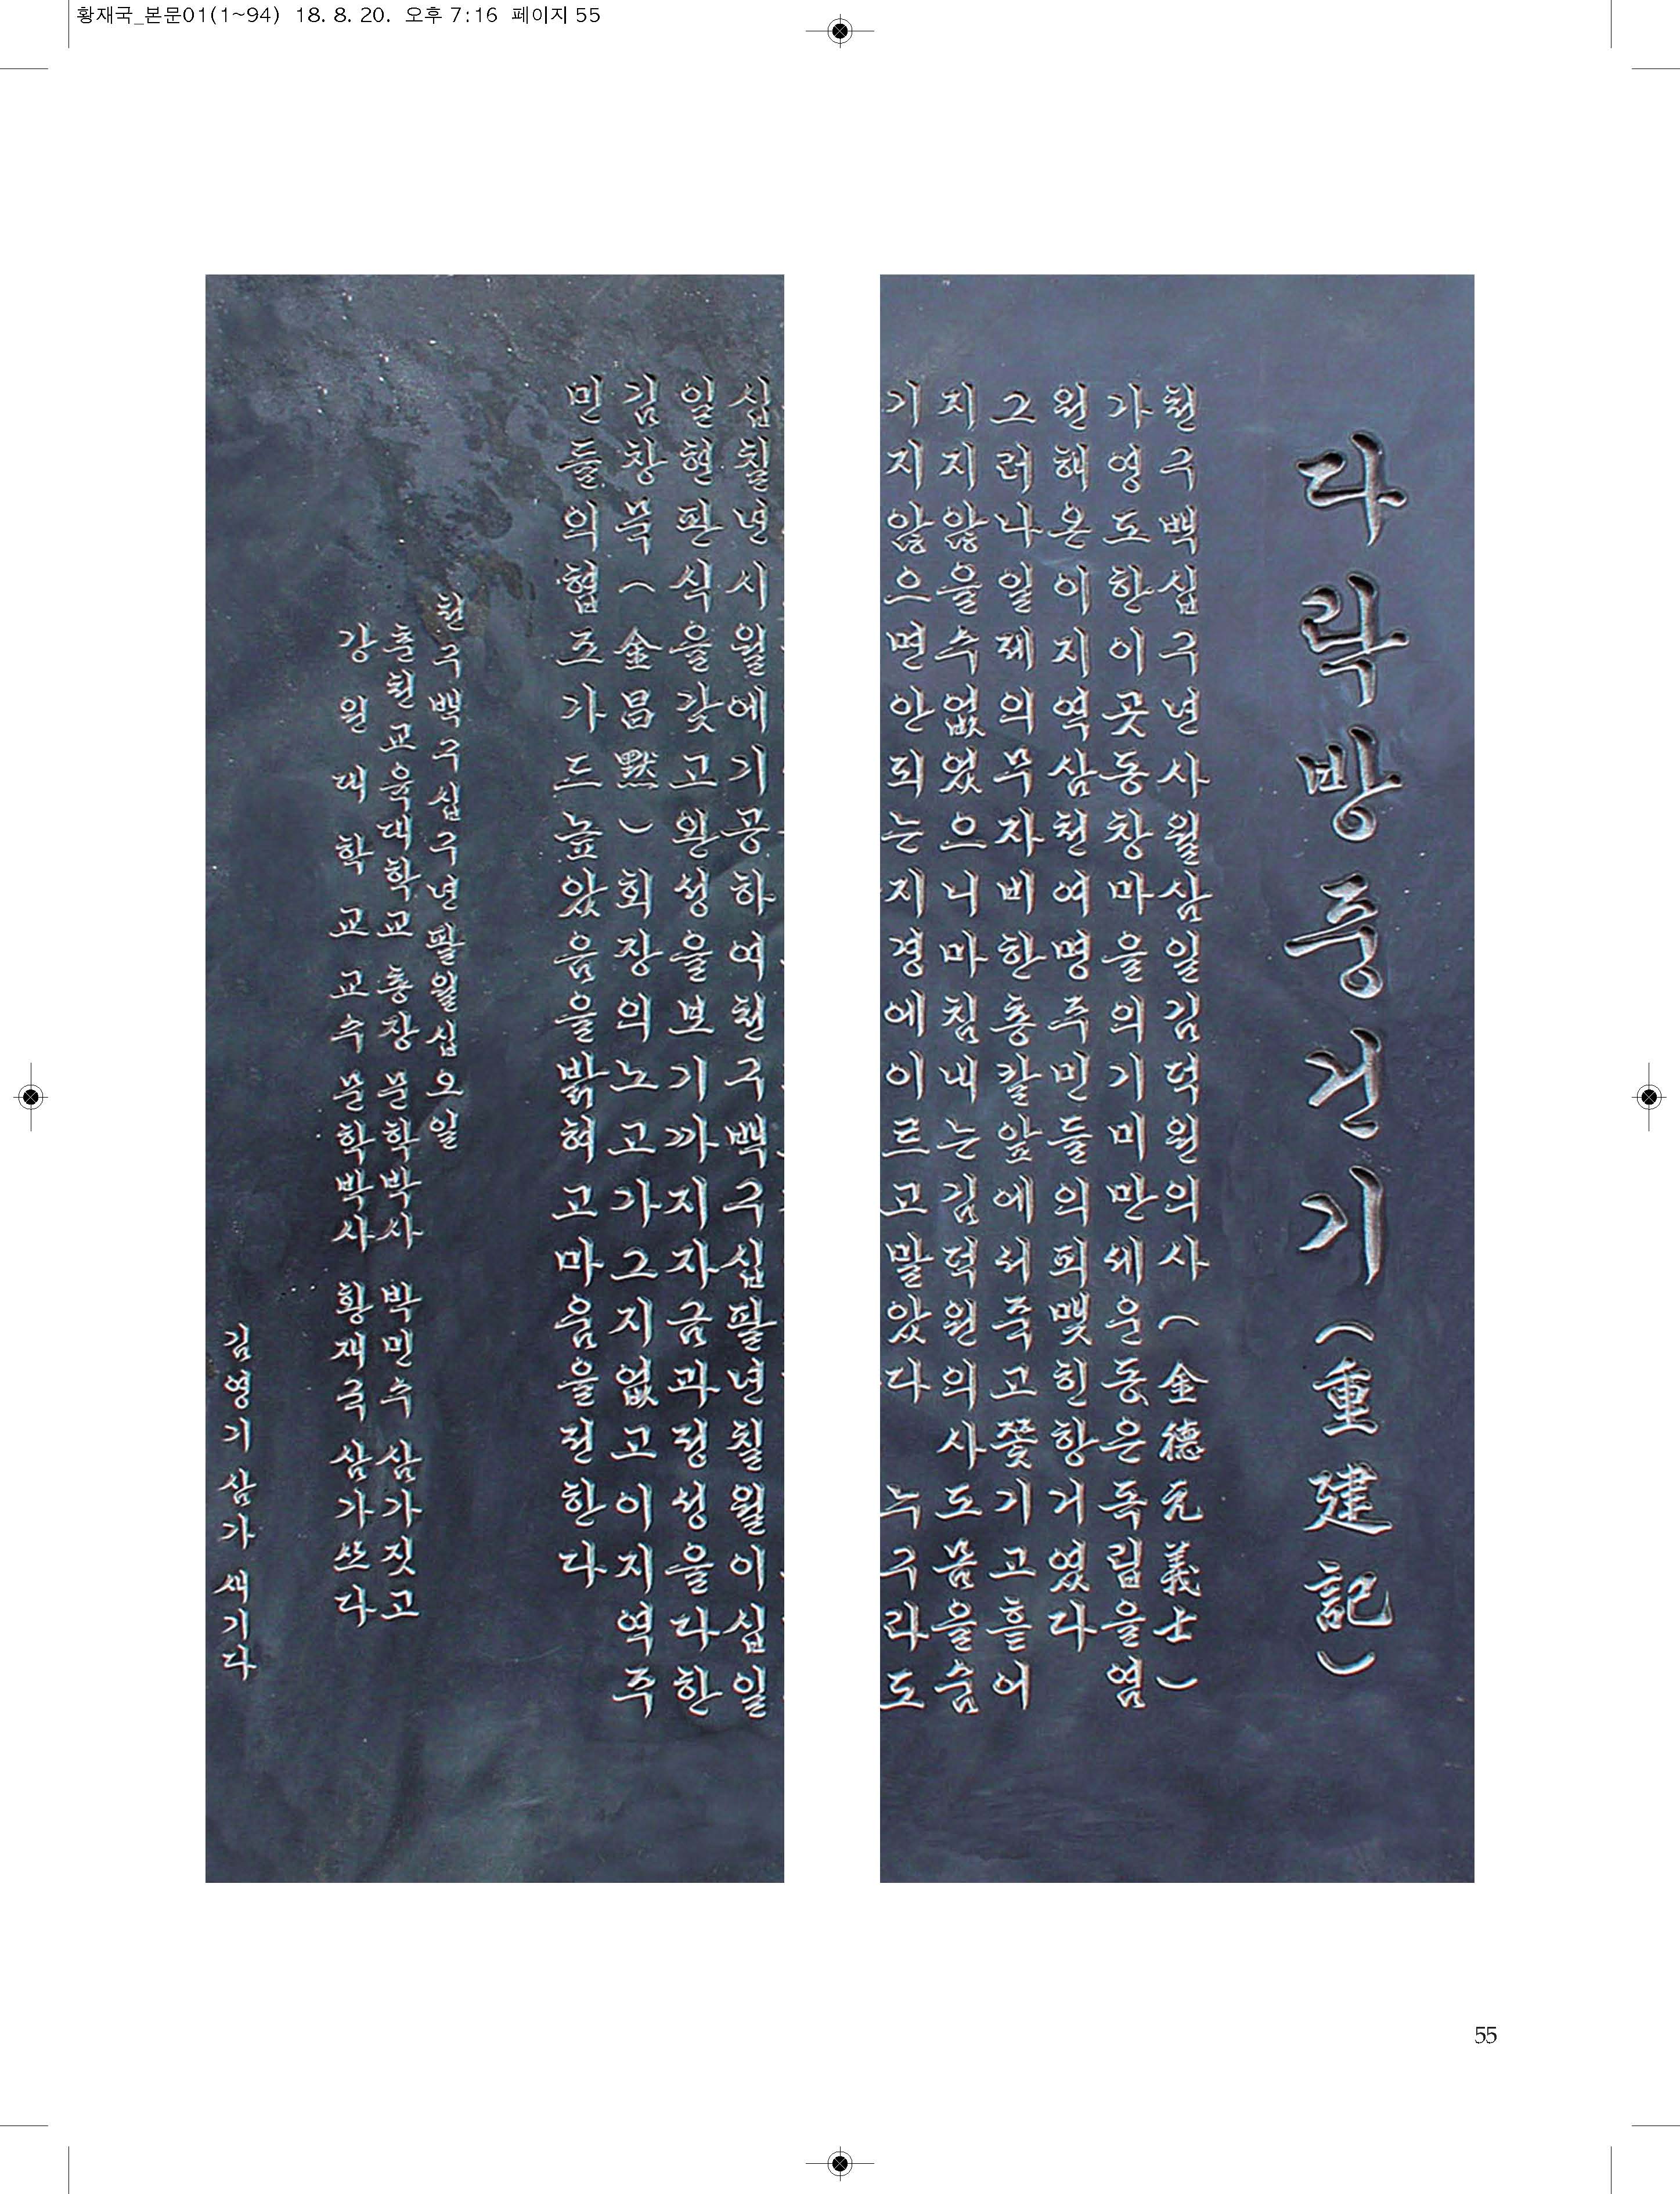 황재국_본문01(1~94) 18. 8. 20. 오후 7:16 페이지 55
다락방중건기(重建記)
천구백십구년사월삼일김덕원의사(金德元義士)
가영도한이곳동창마을의기미만세운동은독립을염
원해온이지역삼천여명주민들의피맺힌항거였다
그러나일제의무자비한총칼앞에서죽고쫓기고흩어
지지않을수없었으니마침내는김덕원의사도몸을숨
기지않으면안되는지경에이르고말았다 누구라도
십칠년시월에기공하여천구백구십팔년칠월이십일
일현판식을갖고완성을보기까지자금과정성을다한
김창묵(金昌默)회장의노고가그지없고이지역주
민들의협조가드높았음을밝혀고마움을전한다
천구백구십구년팔월십오일
춘천교육대학교 총장 문학박사 박민수 삼가짓고
강원대학교 교수 문학박사 황재국 삼가쓰다
김영기 삼가 새기다
55